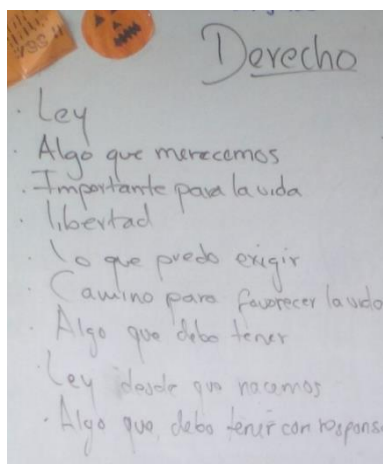 Derecho
· Ley
· Algo que merecemos
· Importante para la vida
· libertad
· lo que puedo exigir
· Camino para favorecer la vida
· Algo que debo tener
· Ley desde que nacemos
· Algo que debo tener con respons